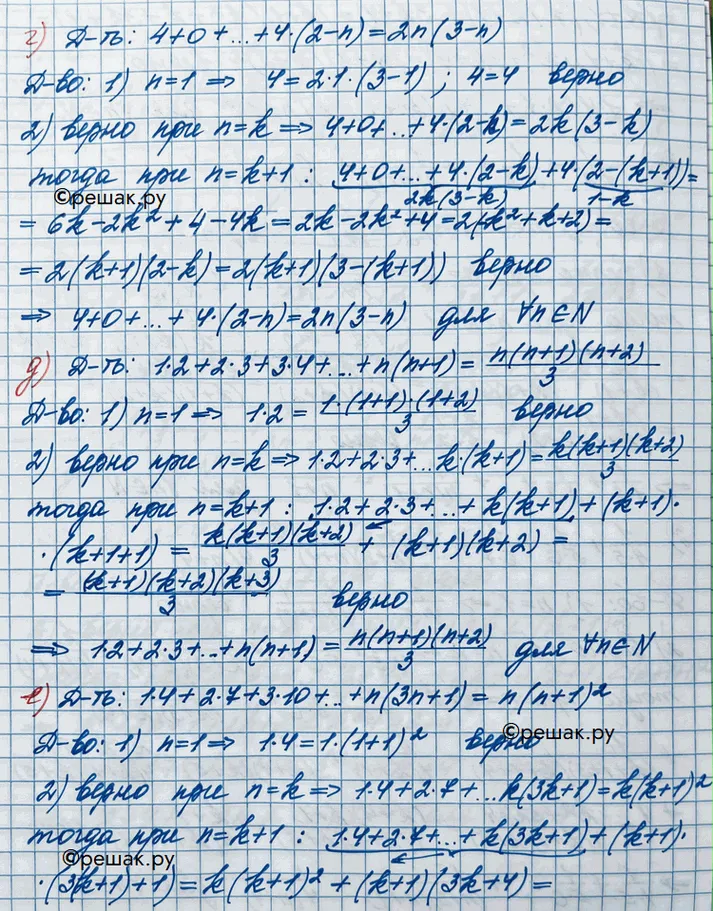 г) Д-ть: 4+0+...+4·(2-n)=2n(3-n)
Д-во: 1) n=1 ⇒ 4=2·1·(3-1) ; 4=4 верно
2) верно при n=k ⇒ 4+0+...+4·(2-k)=2k(3-k)
тогда при n=k+1 : 4+0+...+4·(2-k)+4·(2-(k+1))=
2k(3-k) 1-k
©решак.ру
= 6k-2k²+4-4k=2k-2k²+4=2(-k²+k+2)=
=2(k+1)(2-k)=2(k+1)(3-(k+1)) верно
⇒ 4+0+...+4·(2-n)=2n(3-n) для ∀n∈N
д) Д-ть: 1·2+2·3+3·4+...+n(n+1)= n(n+1)(n+2)/3
Д-во: 1) n=1 ⇒ 1·2= 1·(1+1)·(1+2)/3 верно
2) верно при n=k ⇒ 1·2+2·3+...k·(k+1)= k(k+1)(k+2)/3
тогда при n=k+1 : 1·2+2·3+...+k(k+1)+(k+1)·
·(k+1+1) = k(k+1)(k+2)/3 + (k+1)(k+2)=
= (k+1)(k+2)(k+3)/3 верно
⇒ 1·2+2·3+...+n(n+1)= n(n+1)(n+2)/3 для ∀n∈N
е) Д-ть: 1·4+2·7+3·10+...+n(3n+1)= n(n+1)²
©решак.ру
Д-во: 1) n=1 ⇒ 1·4=1·(1+1)² верно
2) верно при n=k ⇒ 1·4+2·7+...k(3k+1)=k(k+1)²
тогда при n=k+1 : 1·4+2·7+...+k(3k+1)+(k+1)·
©решак.ру
·(3(k+1)+1)=k(k+1)²+(k+1)(3k+4)=